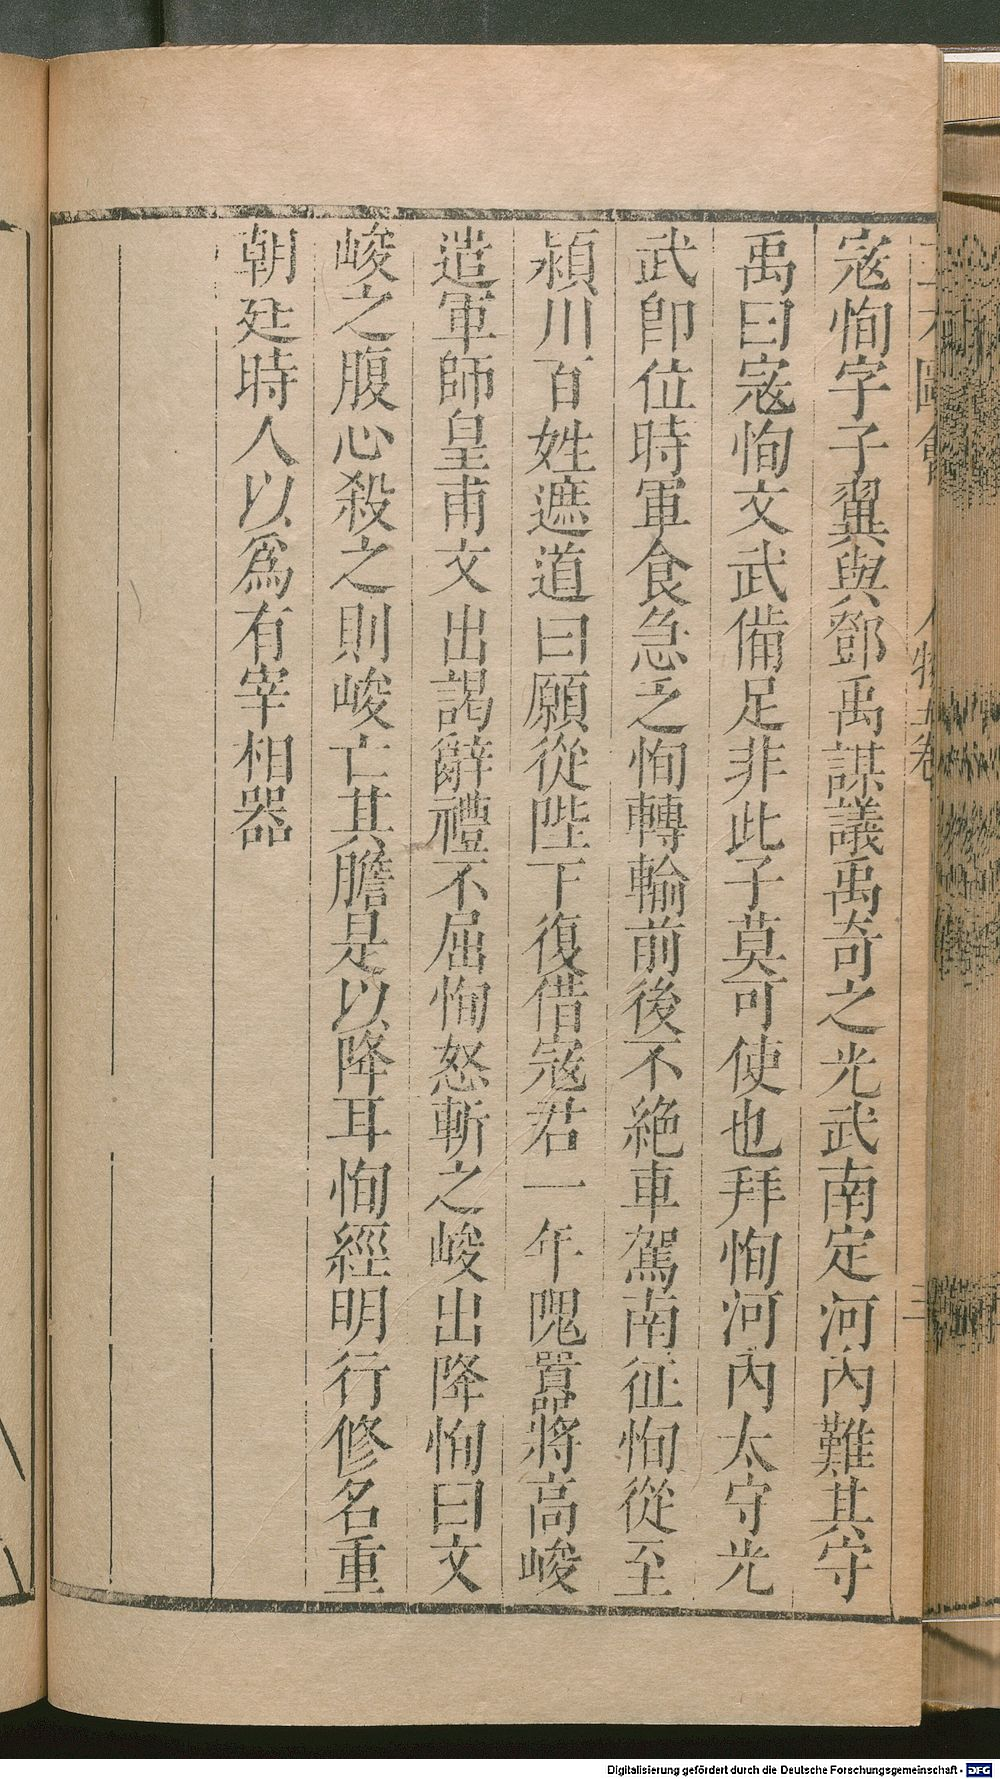 三才圖會 人物五卷 三
寇恂字子翼與鄧禹謀議禹奇之光武南定河內難其守
禹曰寇恂文武備足非此子莫可使也拜恂河內太守光
武卽位時軍食急乏恂轉輸前後不絶車駕南征恂從至
潁川百姓遮道曰願從陛下復借寇君一年隗囂將高峻
遣軍師皇甫文出謁辭禮不屈恂怒斬之峻出降恂曰文
峻之腹心殺之則峻亡其膽是以降耳恂經明行修名重
朝廷時人以爲有宰相器
Digitalisierung gefördert durch die Deutsche Forschungsgemeinschaft - DFG